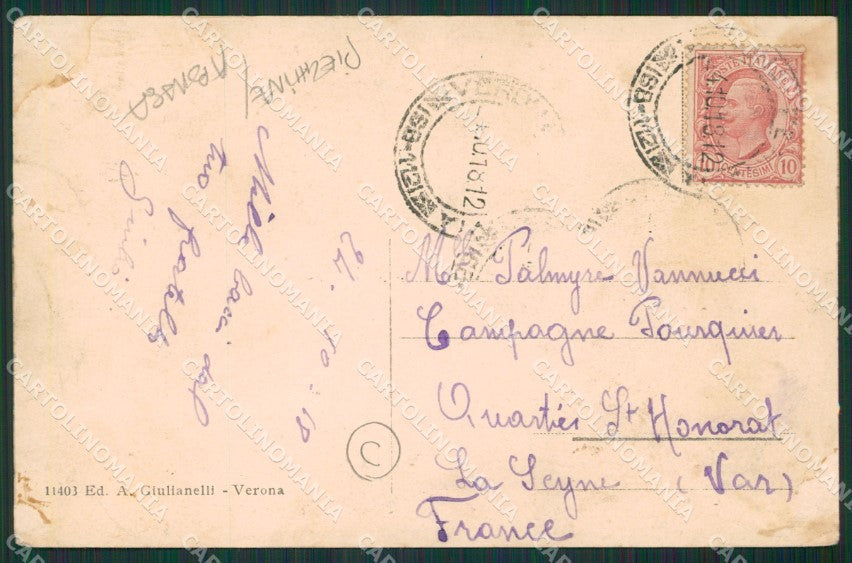 PIEGHINE
Mille baci dal
tuo fratello
24-10-18
POSTE ITALIANE
CENTESIMI 10
Mlle Palmyre Vannucci
Campagne Fourquier
Quartier St Honorat
La Seyne (Var)
France
C
11403 Ed. A. Giulianelli - Verona
CARTOLINOMANIA